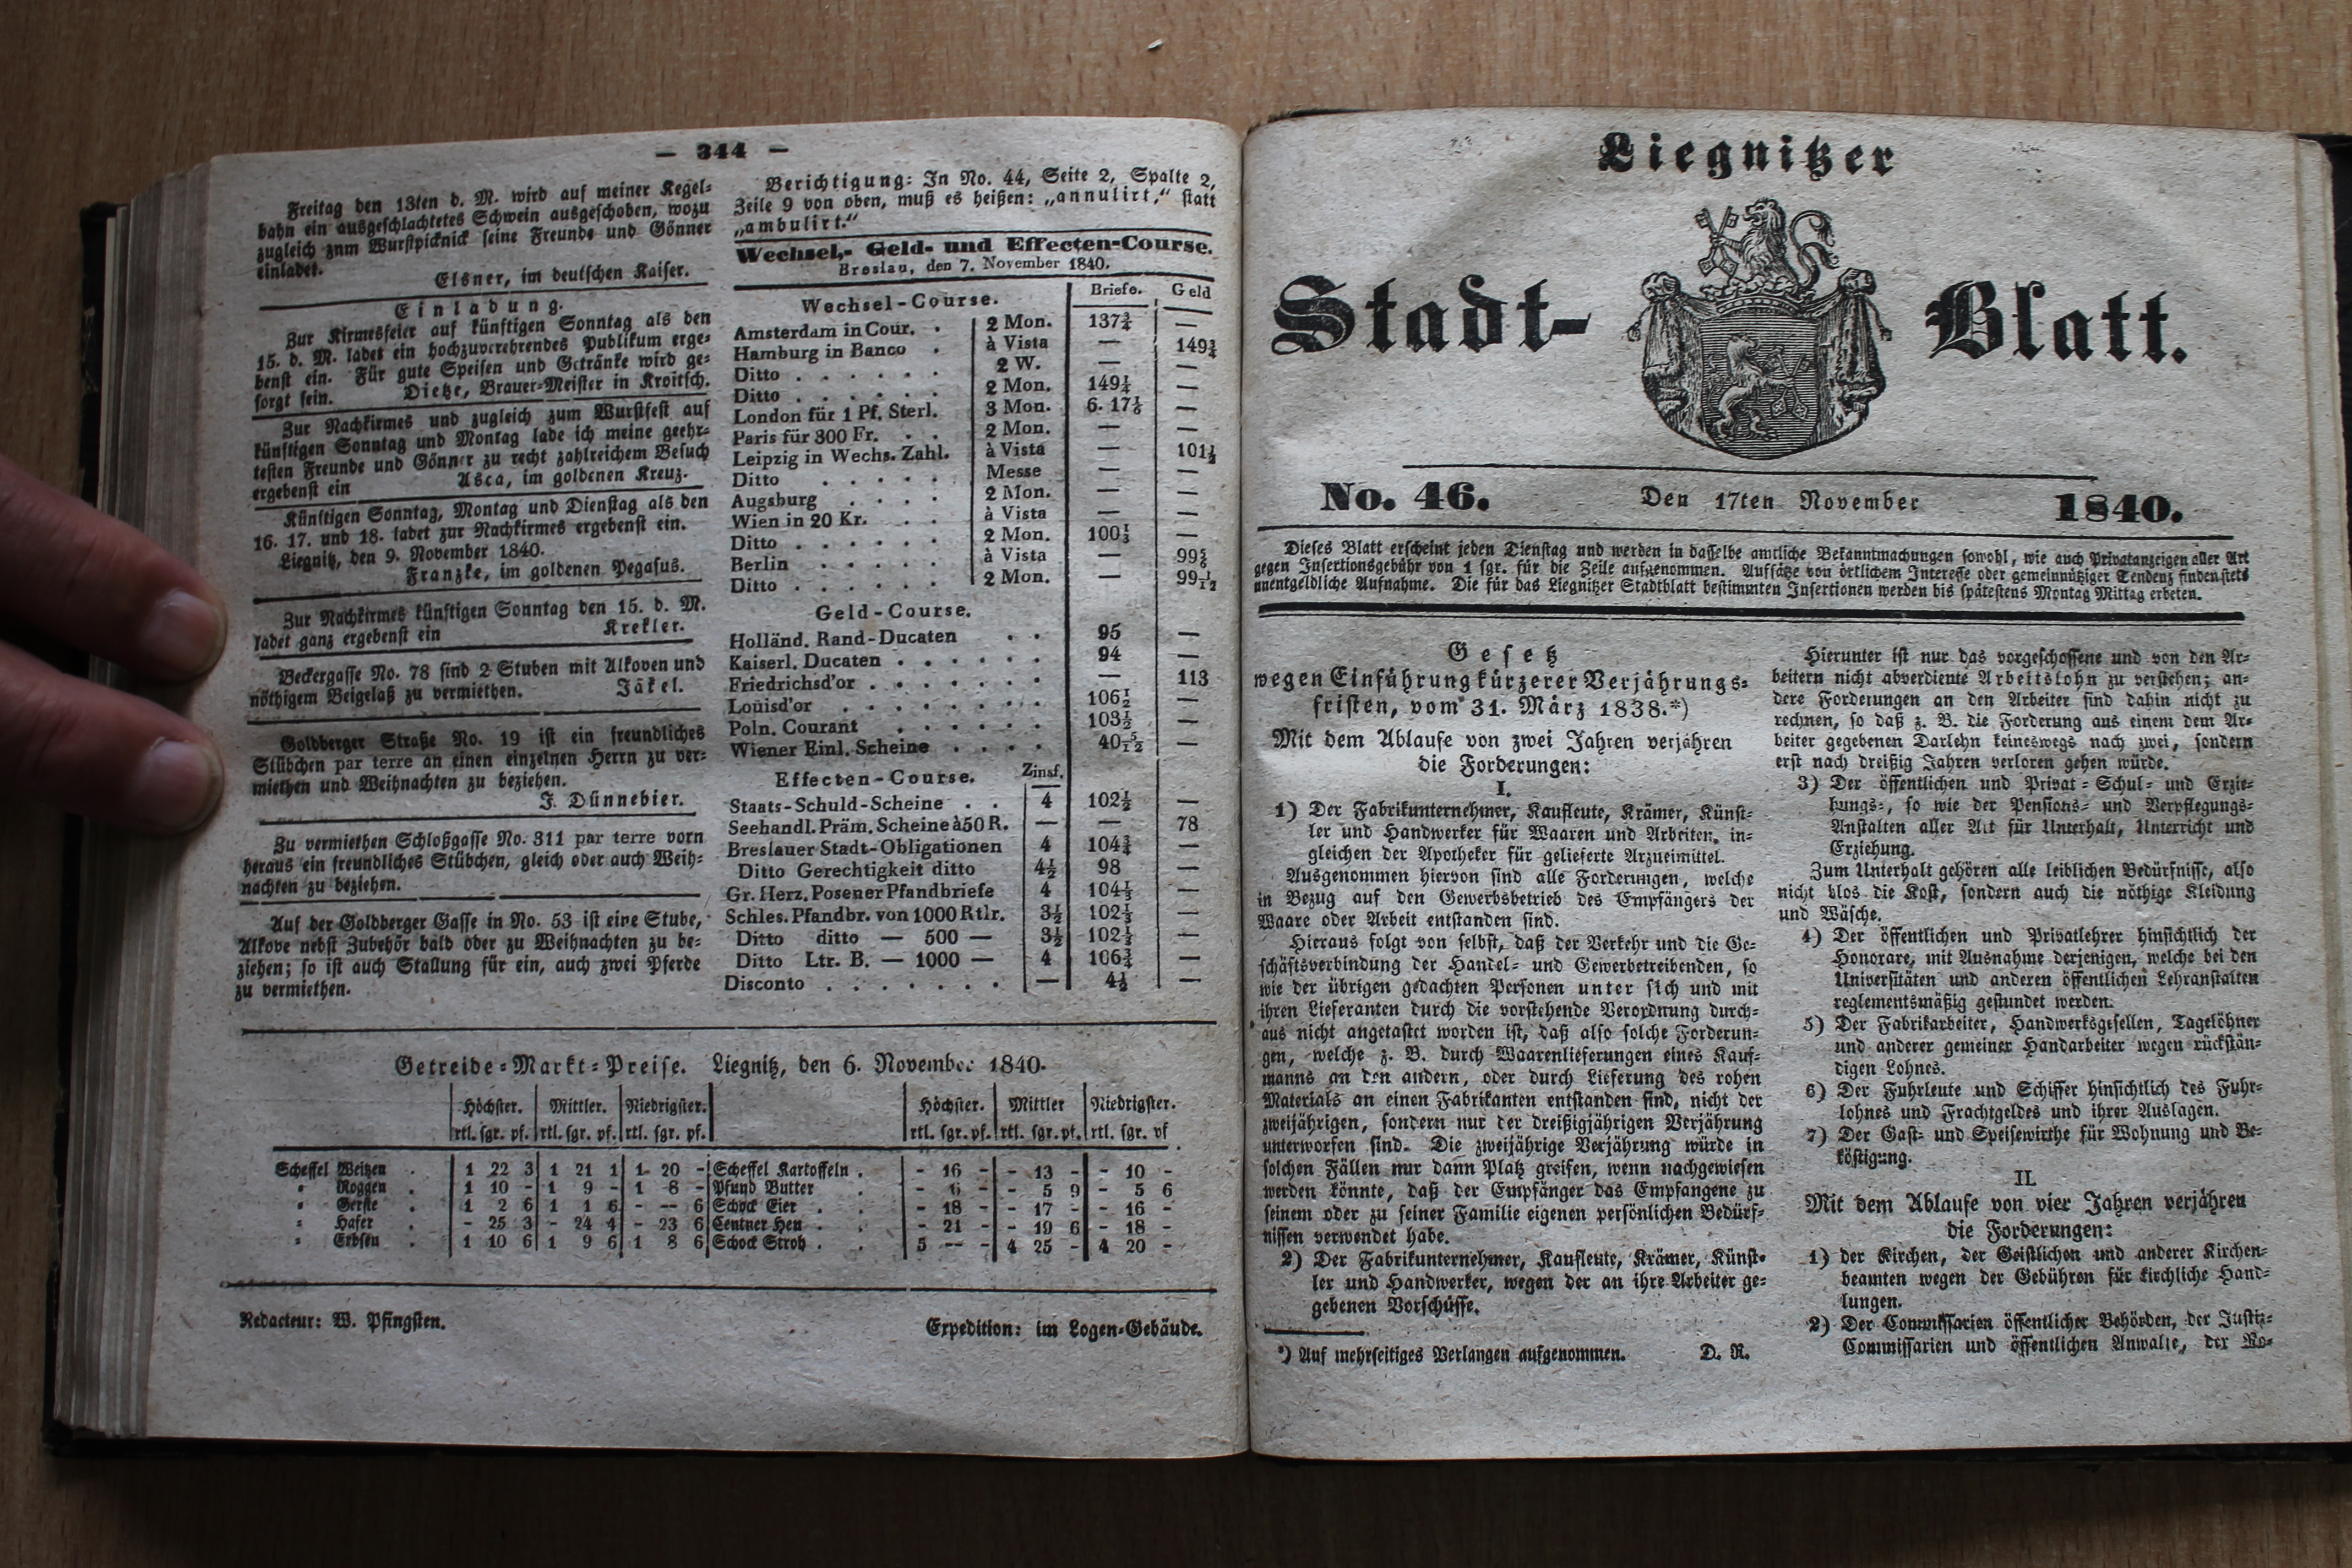 — 344 —
Freitag den 13ten d. M. wird auf meiner Kegel-
bahn ein ausgeschlachtetes Schwein ausgeschoben, wozu
zugleich znm Wurstpicknick seine Freunde und Gönner
einladet.
Elsner, im deutschen Kaiser.
Einladung.
Zur Kirmesfeier auf künftigen Sonntag als den
15. d. M. ladet ein hochzuverehrendes Publikum erge-
benst ein. Für gute Speisen und Getränke wird ge-
sorgt sein. Dietze, Brauer-Meister in Kroitsch.
Zur Nachkirmes und zugleich zum Wurstfest auf
künftigen Sonntag und Montag lade ich meine geehr-
testen Freunde und Gönner zu recht zahlreichem Besuch
ergebenst ein Asca, im goldenen Kreuz.
Künftigen Sonntag, Montag und Dienstag als den
16. 17. und 18. ladet zur Nachkirmes ergebenst ein.
Liegnitz, den 9. November 1840.
Franzke, im goldenen Pegasus.
Zur Nachkirmes künftigen Sonntag den 15. d. M.
ladet ganz ergebenst ein Krekler.
Beckergasse No. 78 sind 2 Stuben mit Alkoven und
nöthigem Beigelaß zu vermiethen. Jäkel.
Goldberger Straße No. 19 ist ein freundliches
Stübchen par terre an einen einzelnen Herrn zu ver-
miethen und Weihnachten zu beziehen.
J. Dünnebier.
Zu vermiethen Schloßgasse No. 311 par terre vorn
heraus ein freundliches Stübchen, gleich oder auch Weih-
nachten zu beziehen.
Auf der Goldberger Gasse in No. 53 ist eine Stube,
Alkove nebst Zubehör bald oder zu Weihnachten zu be-
ziehen; so ist auch Stallung für ein, auch zwei Pferde
zu vermiethen.
Berichtigung: In No. 44, Seite 2, Spalte 2,
Zeile 9 von oben, muß es heißen: „annulirt,“ statt
„ambulirt.“
Wechsel,- Geld- und Effecten-Course.
Breslau, den 7. November 1840.
Wechsel-Course. Briefe. Geld
Amsterdam in Cour. . 2 Mon. 137¾ —
Hamburg in Banco . à Vista — 149¾
Ditto . . . . . . 2 W. — —
Ditto . . . . . . 2 Mon. 149¼ —
London für 1 Pf. Sterl. 3 Mon. 6. 17⅙ —
Paris für 300 Fr. . . 2 Mon. — —
Leipzig in Wechs. Zahl. à Vista — 101½
Ditto . . . . . Messe — —
Augsburg . . . . 2 Mon. — —
Wien in 20 Kr. . . à Vista — —
Ditto . . . . . . 2 Mon. 100⅓ —
Berlin . . . . . à Vista — 99⅚
Ditto . . . . . . 2 Mon. — 99 1/12
Geld-Course.
Holländ. Rand-Ducaten . . 95 —
Kaiserl. Ducaten . . . . . . 94 —
Friedrichsd'or . . . . . . . — 113
Louisd'or . . . . . . . 106½ —
Poln. Courant . . . . . . 103½ —
Wiener Einl. Scheine . . . . 40 5/12 —
Effecten-Course. Zinsf.
Staats-Schuld-Scheine . . 4 102½ —
Seehandl. Präm. Scheine à 50 R. — — 78
Breslauer Stadt-Obligationen 4 104¾ —
Ditto Gerechtigkeit ditto 4½ 98 —
Gr. Herz. Posener Pfandbriefe 4 104⅓ —
Schles. Pfandbr. von 1000 Rtlr. 3½ 102⅓ —
Ditto ditto — 500 — 3½ 102⅓ —
Ditto Ltr. B. — 1000 — 4 106¾ —
Disconto . . . . . . . — 4½ —
Getreide-Markt-Preise. Liegnitz, den 6. November 1840.
Höchster. Mittler. Niedrigster. Höchster. Mittler Niedrigster.
rtl. sgr. pf. rtl. sgr. pf. rtl. sgr. pf. rtl. sgr. pf. rtl. sgr. pf. rtl. sgr. pf
Scheffel Weitzen . 1 22 3 1 21 1 1 20 - Scheffel Kartoffeln . - 16 - - 13 - - 10 -
" Roggen . 1 10 - 1 9 - 1 8 - Pfund Butter . - 6 - - 5 9 - 5 6
" Gerste . 1 2 6 1 1 6 - -- 6 Schock Eier . . - 18 - - 17 - - 16 -
" Hafer . - 25 3 - 24 4 - 23 6 Centner Heu . . - 21 - - 19 6 - 18 -
" Erbsen . 1 10 6 1 9 6 1 8 6 Schock Stroh . . 5 -- - 4 25 - 4 20 -
Redacteur: W. Pfingsten. Expedition: im Logen-Gebäude.
Liegnitzer
Stadt- Blatt.
No. 46. Den 17ten November 1840.
Dieses Blatt erscheint jeden Dienstag und werden in dasselbe amtliche Bekanntmachungen sowohl, wie auch Privatanzeigen aller Art
gegen Insertionsgebühr von 1 sgr. für die Zeile aufgenommen. Aufsätze von örtlichem Interesse oder gemeinnütziger Tendenz finden stets
unentgeldliche Aufnahme. Die für das Liegnitzer Stadtblatt bestimmten Insertionen werden bis spätestens Montag Mittag erbeten.
Gesetz
wegen Einführung kürzerer Verjährungs-
fristen, vom 31. März 1838.*)
Mit dem Ablaufe von zwei Jahren verjähren
die Forderungen:
I.
1) Der Fabrikunternehmer, Kaufleute, Krämer, Künst-
ler und Handwerker für Waaren und Arbeiten, in-
gleichen der Apotheker für gelieferte Arzneimittel.
Ausgenommen hiervon sind alle Forderungen, welche
in Bezug auf den Gewerbsbetrieb des Empfängers der
Waare oder Arbeit entstanden sind.
Hieraus folgt von selbst, daß der Verkehr und die Ge-
schäftsverbindung der Handel- und Gewerbetreibenden, so
wie der übrigen gedachten Personen unter sich und mit
ihren Lieferanten durch die vorstehende Verordnung durch-
aus nicht angetastet worden ist, daß also solche Forderun-
gen, welche z. B. durch Waarenlieferungen eines Kauf-
manns an den andern, oder durch Lieferung des rohen
Materials an einen Fabrikanten entstanden sind, nicht der
zweijährigen, sondern nur der dreißigjährigen Verjährung
unterworfen sind. Die zweijährige Verjährung würde in
solchen Fällen nur dann Platz greifen, wenn nachgewiesen
werden könnte, daß der Empfänger das Empfangene zu
seinem oder zu seiner Familie eigenen persönlichen Bedürf-
nissen verwendet habe.
2) Der Fabrikunternehmer, Kaufleute, Krämer, Künst-
ler und Handwerker, wegen der an ihre Arbeiter ge-
gebenen Vorschüsse.
*) Auf mehrseitiges Verlangen aufgenommen. D. R.
Hierunter ist nur das vorgeschossene und von den Ar-
beitern nicht abverdiente Arbeitslohn zu verstehen; an-
dere Forderungen an den Arbeiter sind dahin nicht zu
rechnen, so daß z. B. die Forderung aus einem dem Ar-
beiter gegebenen Darlehn keineswegs nach zwei, sondern
erst nach dreißig Jahren verloren gehen würde.
3) Der öffentlichen und Privat-Schul- und Erzie-
hungs-, so wie der Pensions- und Verpflegungs-
Anstalten aller Art für Unterhalt, Unterricht und
Erziehung.
Zum Unterhalt gehören alle leiblichen Bedürfnisse, also
nicht blos die Kost, sondern auch die nöthige Kleidung
und Wäsche.
4) Der öffentlichen und Privatlehrer hinsichtlich der
Honorare, mit Ausnahme derjenigen, welche bei den
Universitäten und anderen öffentlichen Lehranstalten
reglementsmäßig gestundet werden.
5) Der Fabrikarbeiter, Handwerksgesellen, Tagelöhner
und anderer gemeiner Handarbeiter wegen rückstän-
digen Lohnes.
6) Der Fuhrleute und Schiffer hinsichtlich des Fuhr-
lohnes und Frachtgeldes und ihrer Auslagen.
7) Der Gast- und Speisewirthe für Wohnung und Be-
köstigung.
II.
Mit dem Ablaufe von vier Jahren verjähren
die Forderungen:
1) der Kirchen, der Geistlichen und anderer Kirchen-
beamten wegen der Gebühren für kirchliche Hand-
lungen.
2) Der Commissarien öffentlicher Behörden, der Justiz-
Commissarien und öffentlichen Anwalte, der No-